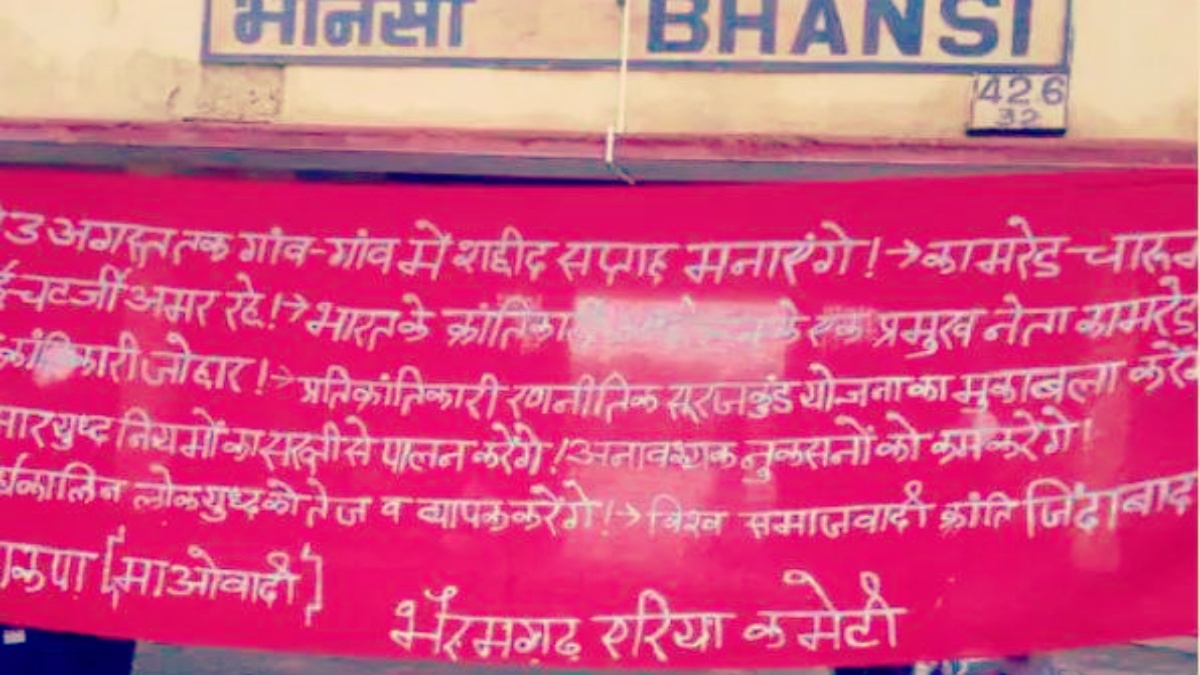 भांनसी BHANSI
426
32
3 अगस्त तक गांव-गांव में शहीद सप्ताह मनाएंगे! → कामरेड चारू
चटर्जी अमर रहे! → भारत के क्रांतिका के एक प्रमुख नेता कामरेड
क्रांतिकारी जोहार! → प्रतिक्रांतिकारी रणनीतिक सूरजकुंड योजना का मुकाबला करेंगे
युध्द नियमों का सख्ती से पालन करेंगे! अनावश्यक नुकसनों को कम करेंगे!
लोकयुध्द को तेज व व्यापक करेंगे! → विश्व समाजवादी क्रांति जिंदाबाद
[माओवादी]
भैरमगढ़ एरिया कमेटी